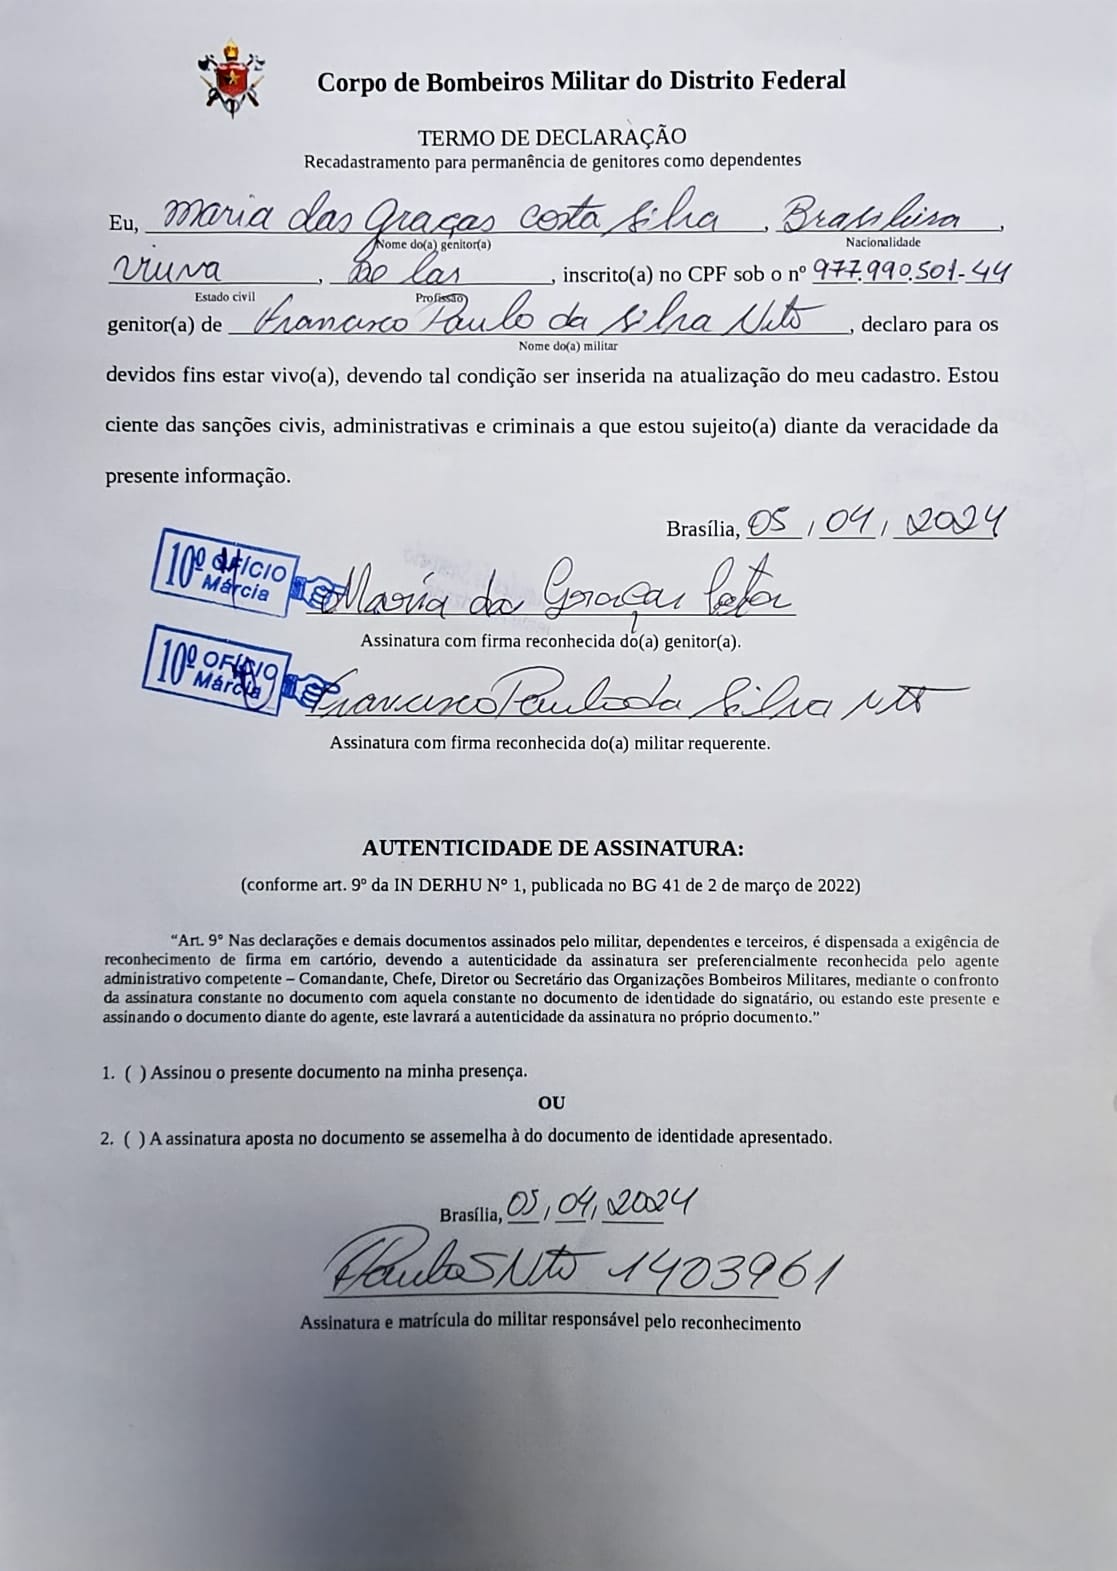 Corpo de Bombeiros Militar do Distrito Federal
TERMO DE DECLARAÇÃO
Recadastramento para permanência de genitores como dependentes
Eu, Maria das Graças Costa Silva, Brasileira,
Nome do(a) genitor(a) Nacionalidade
Viuva, Do lar, inscrito(a) no CPF sob o nº 977.990.501-44
Estado civil Profissão
genitor(a) de Francisco Paulo da Silva Neto, declaro para os
Nome do(a) militar
devidos fins estar vivo(a), devendo tal condição ser inserida na atualização do meu cadastro. Estou
ciente das sanções civis, administrativas e criminais a que estou sujeito(a) diante da veracidade da
presente informação.
Brasília, 05 / 04 / 2024
10º OFÍCIO
Márcia
Maria das Graças Costa
Assinatura com firma reconhecida do(a) genitor(a).
10º OFÍCIO
Márcia
Francisco Paulo da Silva Neto
Assinatura com firma reconhecida do(a) militar requerente.
AUTENTICIDADE DE ASSINATURA:
(conforme art. 9º da IN DERHU Nº 1, publicada no BG 41 de 2 de março de 2022)
“Art. 9º Nas declarações e demais documentos assinados pelo militar, dependentes e terceiros, é dispensada a exigência de
reconhecimento de firma em cartório, devendo a autenticidade da assinatura ser preferencialmente reconhecida pelo agente
administrativo competente – Comandante, Chefe, Diretor ou Secretário das Organizações Bombeiros Militares, mediante o confronto
da assinatura constante no documento com aquela constante no documento de identidade do signatário, ou estando este presente e
assinando o documento diante do agente, este lavrará a autenticidade da assinatura no próprio documento.”
1. ( ) Assinou o presente documento na minha presença.
OU
2. ( ) A assinatura aposta no documento se assemelha à do documento de identidade apresentado.
Brasília, 05 / 04 / 2024
Paulo S Neto 1403961
Assinatura e matrícula do militar responsável pelo reconhecimento